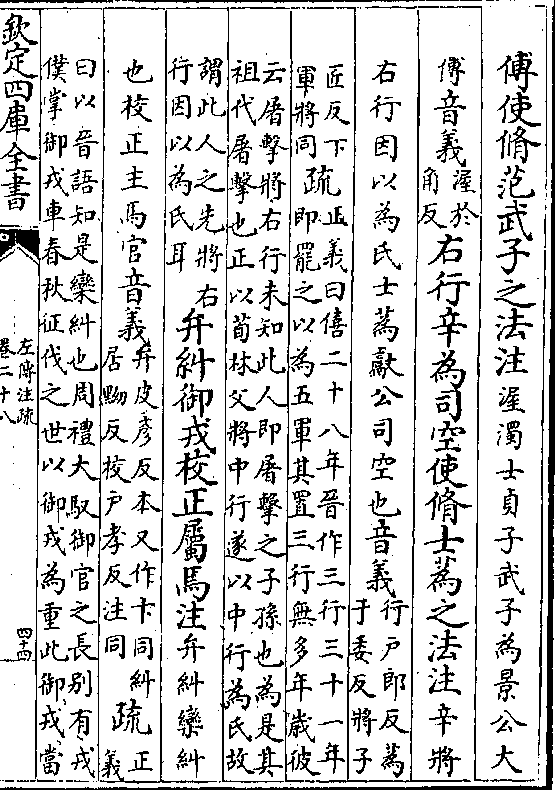 傅使脩范武子之法注渥濁士貞子武子為景公大
傅音義渥於
角反
右行辛為司空使脩士蒍之法注辛將
右行因以為氏士蒍獻公司空也音義行户郎反蒍
于委反將子
匠反下
軍將同
疏正義曰僖二十八年晉作三行三十一年
即罷之以為五軍其置三行無多年歲彼
云屠擊將右行未知此人即屠擊之子孫也為是其
祖代屠擊也正以荀林父將中行遂以中行為氏故
謂此人之先將右
行因以為氏耳
弁糾御戎校正屬馬注弁糾欒糾
也校正主馬官音義弁皮彥反本又作卞同糾
居黝反校户孝反注同
疏正
義
曰以晉語知是欒糾也周禮大馭御官之長别有戎
僕掌御戎車春秋征伐之世以御戎為重此御戎當
欽定四庫全書
左傳注疏
卷二十八
四十四